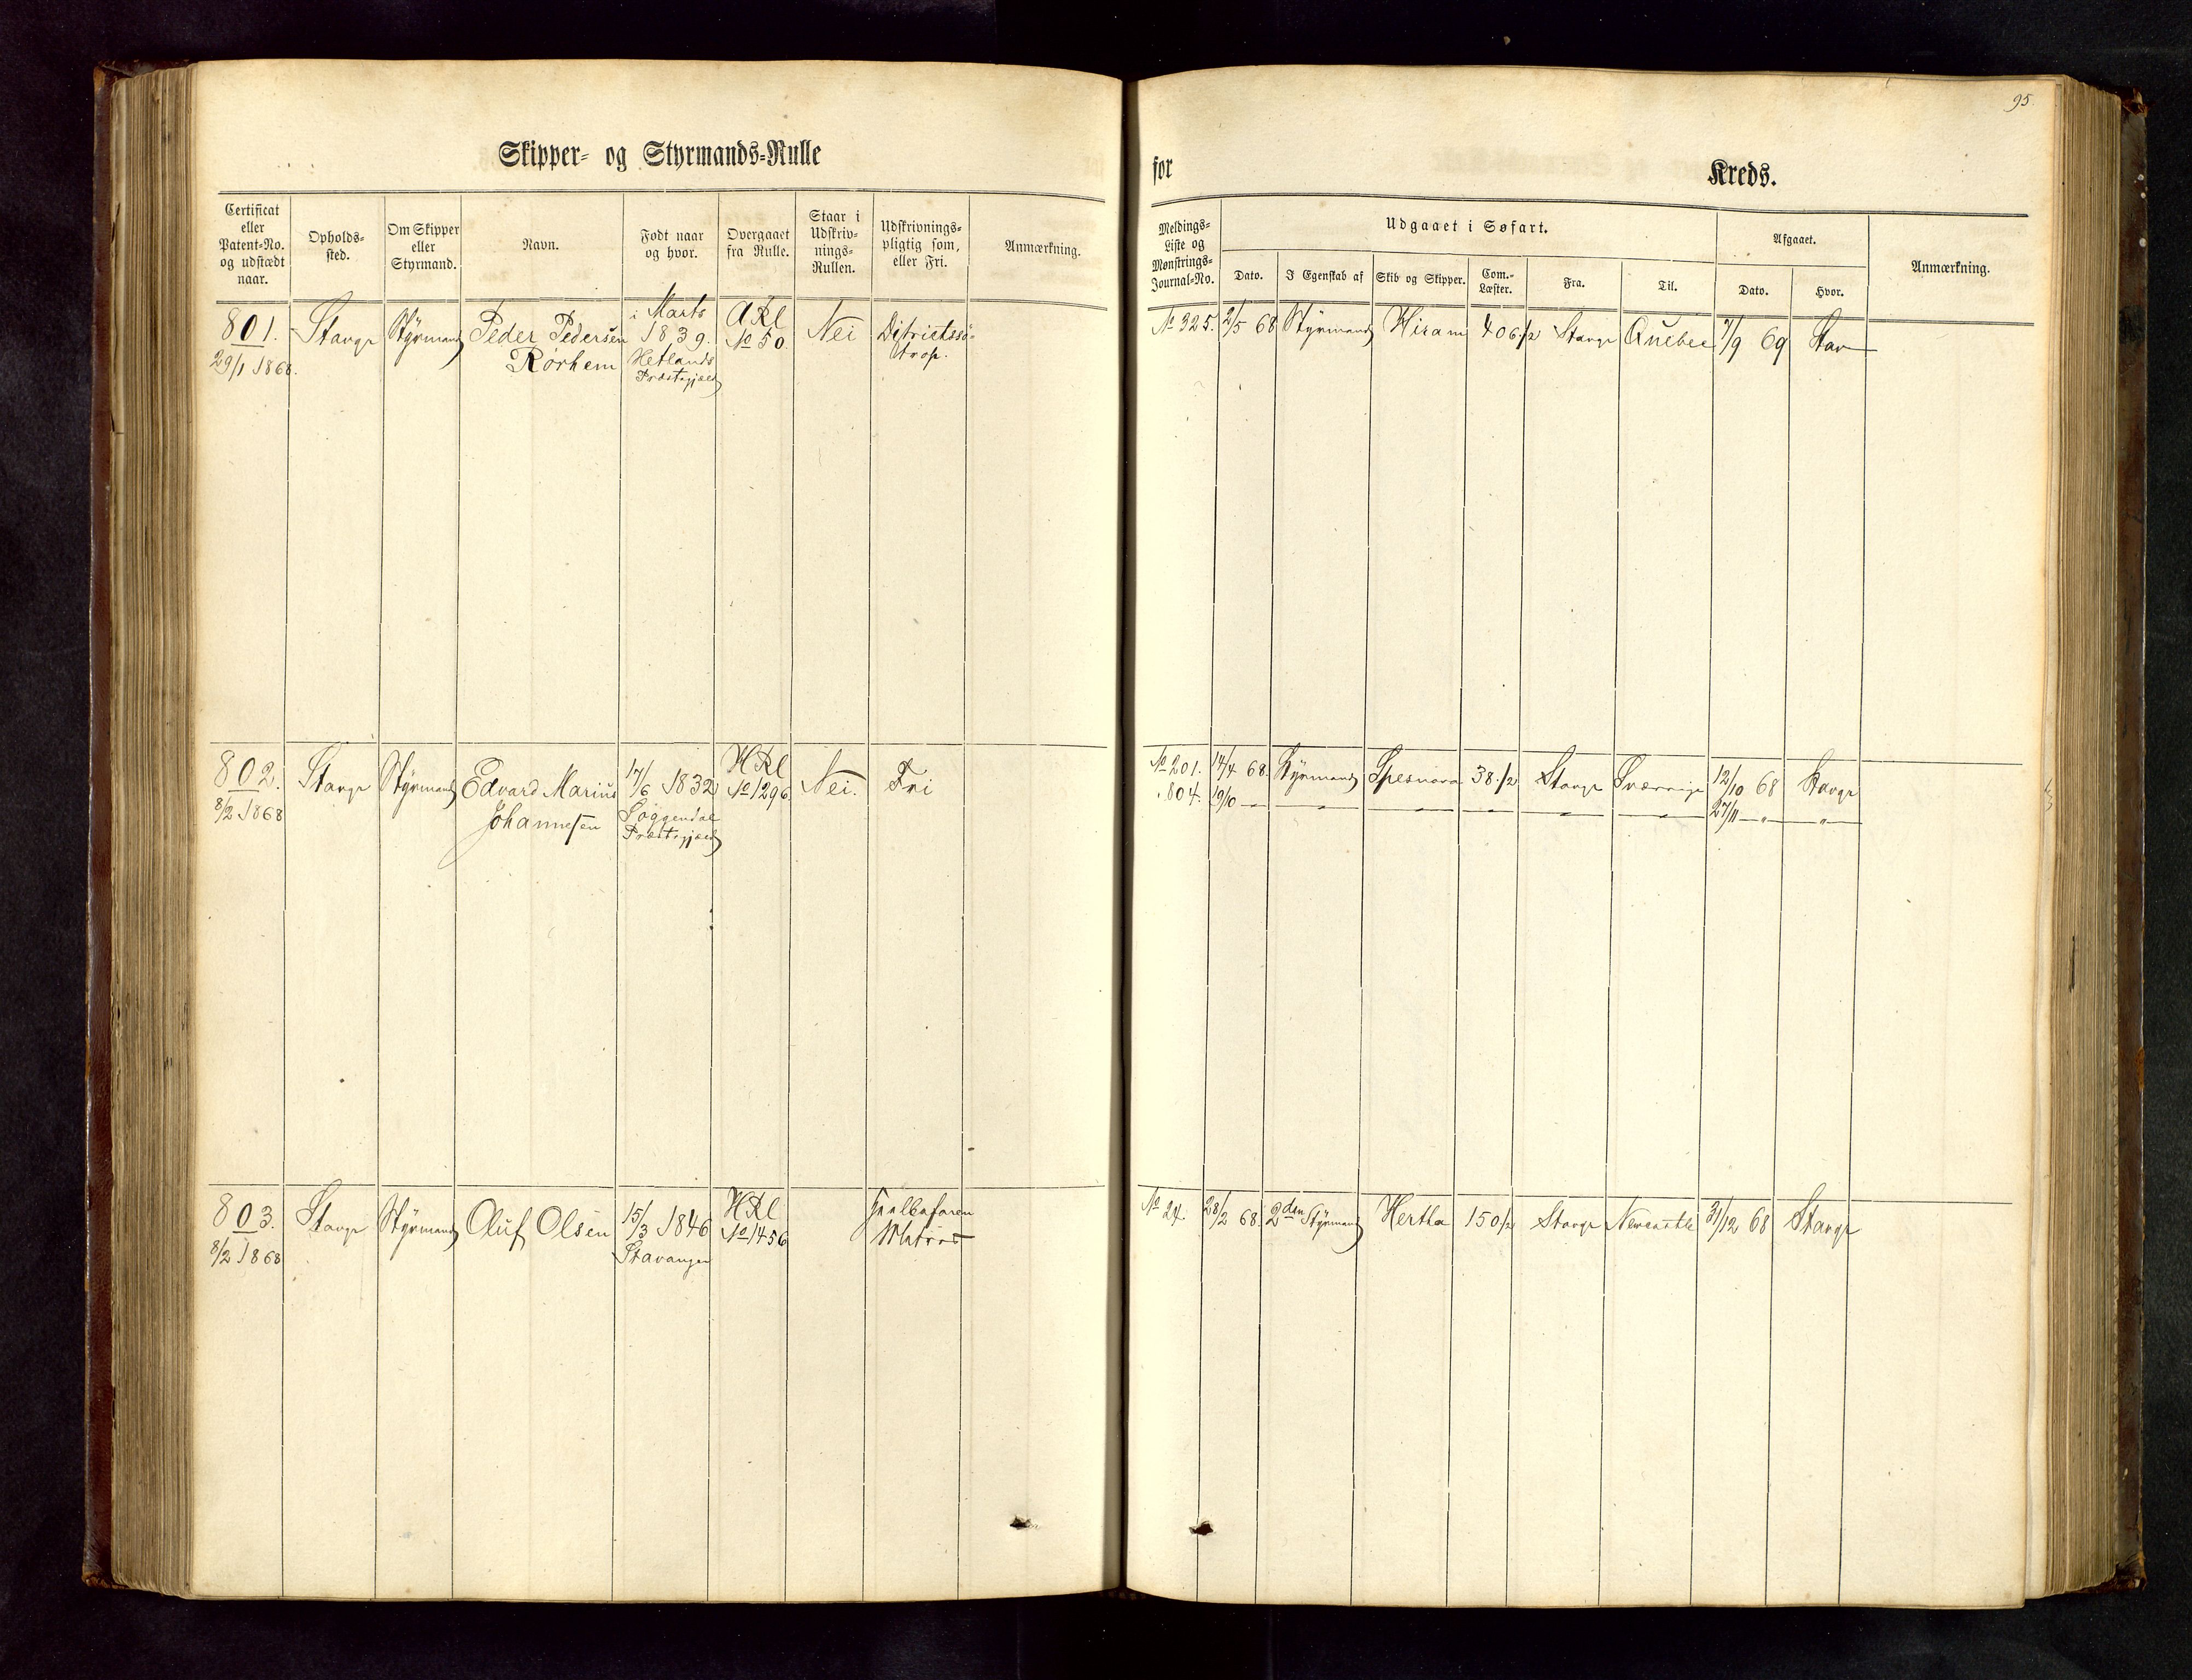 95.
Skipper- og Styrmands-Rulle
for
Kreds.
Certificat eller Patent-No. og udstædt naar.
Opholds-sted.
Om Skipper eller Styrmand.
Navn.
Født naar og hvor.
Overgaaet fra Rulle.
Staar i Udskriv-nings-Rullen.
Udskrivnings-pligtig som, eller Fri.
Anmærkning.
Meldings-Liste og Mønstrings-Journal-No.
Udgaaet i Søfart.
Dato.
I Egenskab af
Skib og Skipper.
Com.-Læster.
Fra.
Til.
Afgaaet.
Dato.
Hvor.
Anmærkning.
801.
29/1 1868.
Stavgr
Styrmand
Peder Pedersen
Rørhem
i Marts
1839.
Hetlands
Præstegjæld
ARl
No 50.
Nei
No 325.
2/5 68
Styrmand
Hiram
406 1/2
Stavgr
Quebec
7/9 69
Stav
802.
8/2 1868
Stavgr
Styrmand
Edvard Marius
Johannesen
17/6 1832
Soggendal
Præstegjæld
HRl
No 1296.
Nei.
Fri
No 201.
14/4 68.
Styrmand
Spesnova
38 1/2
Stavgr
Sværrige
12/10 68
Stavgr
804.
19/10 —
27/11 — "
"
803.
8/2 1868
Stavgr
Styrmand
Oluf Olsen
15/3 1846
Stavanger
HRl
No 1456
Halvbefaren
Matros
No 24.
28/2 68
2den Styrmand
Hertha
150 1/2
Stavgr
Newcastle
31/12 68
Stavgr